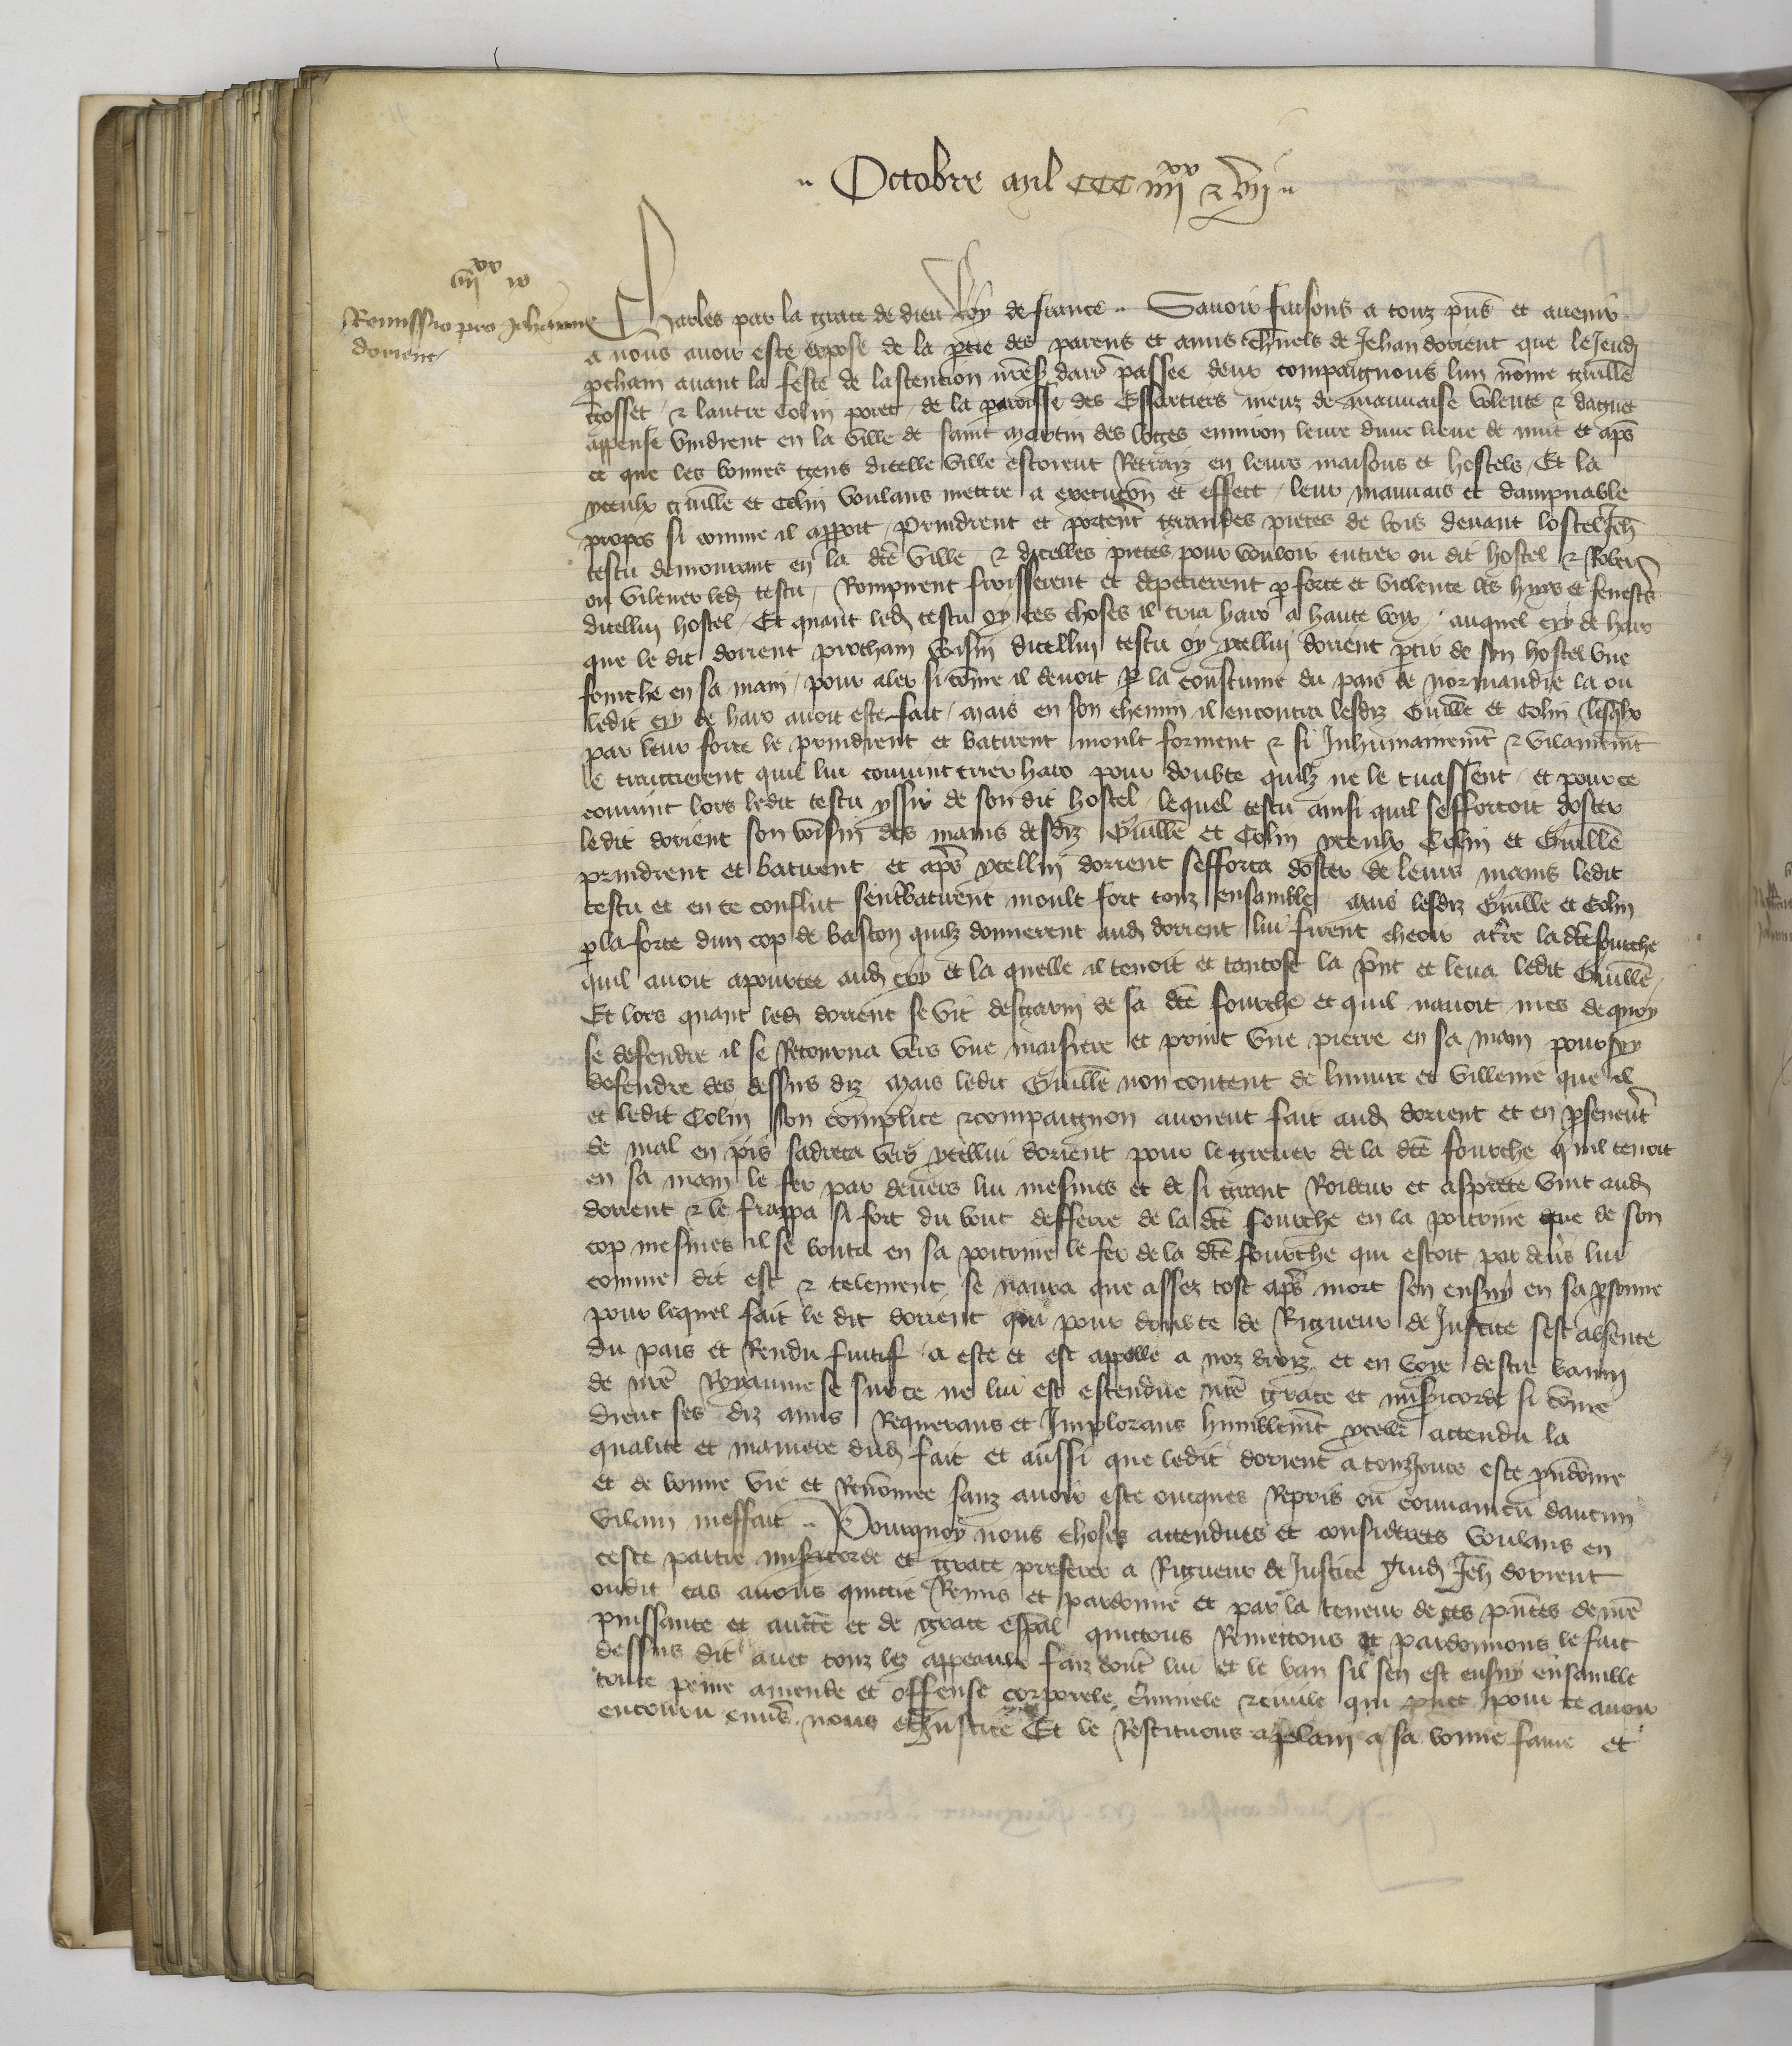 Octobre mil CCC iiijxx & vij
iiijxx ix
Remissio pro Johanne
dorient
Charles par la grace de dieu Roy de france Savoir faisons a touz pns et avenir
a nous avoir este expose de la ptie des parens et amis charnels de Jehan dorient que le Jeudi
pchain avant la feste de lascencion nre sr darr passee deux compaignons lun nome guille
gosset & lautre Colin poret de la parroisse des Essartiers meuz de mauvaise volente & daguet
appense vindrent en la ville de saint martin des loges environ leure dune lieue de nuit et aps
ce que les bonnes gens dicelle ville estoient Retraiz en leurs maisons et hostels Et la
yceulx guille et Colin voulans mettre a execucon et effect leur mauvais et dampnable
propos si comme il appoit prindrent et porterent grandes pieces de bois devant lostel Jeh
testu demourant en la dte ville & dicelles pieces pour vouloir entrer ou dit hostel & Rober
ou vilener led testu Rompirent froisserent et depecierent p force et violence les huys et fenestres
dicellui hostel Et quant led testu oy ces choses il cria haro a haute voix auquel cry de haro
que le dit dorient prochain voisin dicellui testu oy ycellui dorient ptir de son hostel une
fourche en sa main pour aler si come il devoit p la coustume du pais de normandie la ou
ledit cry de haro avoit este fait mais en son chemin il encontra lesdiz Guille et Colin lesqlx
par leur force le prindrent et batirent moult forment & si Inhumainemt & vilainemt
le traicterent quil lui convint crier haro pour doubte quilz ne le tuassent et pour ce
convint lors ledit testu yssir de son dit hostel lequel testu ainsi quil sefforcoit doster
ledit dorient son voisin des mains desdiz Guille et Colin yceulx Colin et Guille
prindrent et batirent et aps ycellui dorient sefforca doster de leurs mains ledit
testu et en ce conflict sentrebatirent moult fort touz ensamble mais lesdiz Guille et Colin
p la force dun cop de baston quilz donnerent aud dorient lui firent cheoir a tre la dte fourche
quil avoit apportee aud cry et la quelle il tenoit et tantost la prit et leva ledit Guille
Et lors quant led dorient se vit desgarni de sa dte fourche et quil navoit mes de quoy
se defendre il se Retourna vers une maisiere et print une pierre en sa main pour soy
defendre des dessus diz mais ledit Guille non content de liniure et villenie que il
et ledit Colin son complice & compaignon avoient fait aud dorient et en psevert
de mal en pis sadreca vers ycellui dorient pour le grever de la dte fourche quil tenoit
en sa main le fer par devers lui mesmes et de si grant Roideur et asprete vint aud
dorient & le frappa si fort du bout defferre de la dte fourche en la poitrine que de son
cop mesmes il se bouta en sa poitrine le fer de la dte fourche qui estoit par devs lui
comme dit est & telement se navra que assez tost aps mort sen ensuy en sa psonne
pour lequel fait le dit dorient qui pour doubte de Rigueur de Justice sest absente
du pais et Rendu fuitif a este et est appelle a noz droiz et en voye destre banni
de nre Royaume se sur ce ne lui est estendue nre grace et misicorde si come
dient ses diz amis Requerans et Implorans humblemt ycelle attendu la
qualite et maniere dud fait et aussi que ledit dorient a touzjours este preudome
et de bonne vie et Renomee sanz avoir este oncques Repris ou convaincu daucun
vilain meffait Pourquoy nous choses attendues et considerees voulans en
ceste partie misicorde et grace preferer a Rigueur de Justice Aud Jeh dorient
oudit cas avons quictie Remis et pardonne et par la teneur de ces pntes de nre
puissance et aucte et de grace espal quictons Remettons et pardonnons le fait
dessus dit avec touz les appeaulx faiz dont lui et le ban sil sen est ensuy ensamble
toute peine amende et offense corporele criminele & civile qui puet pour ce avoir
encouru envs nous et Justice Et le Restituons a plain a sa bonne fame et